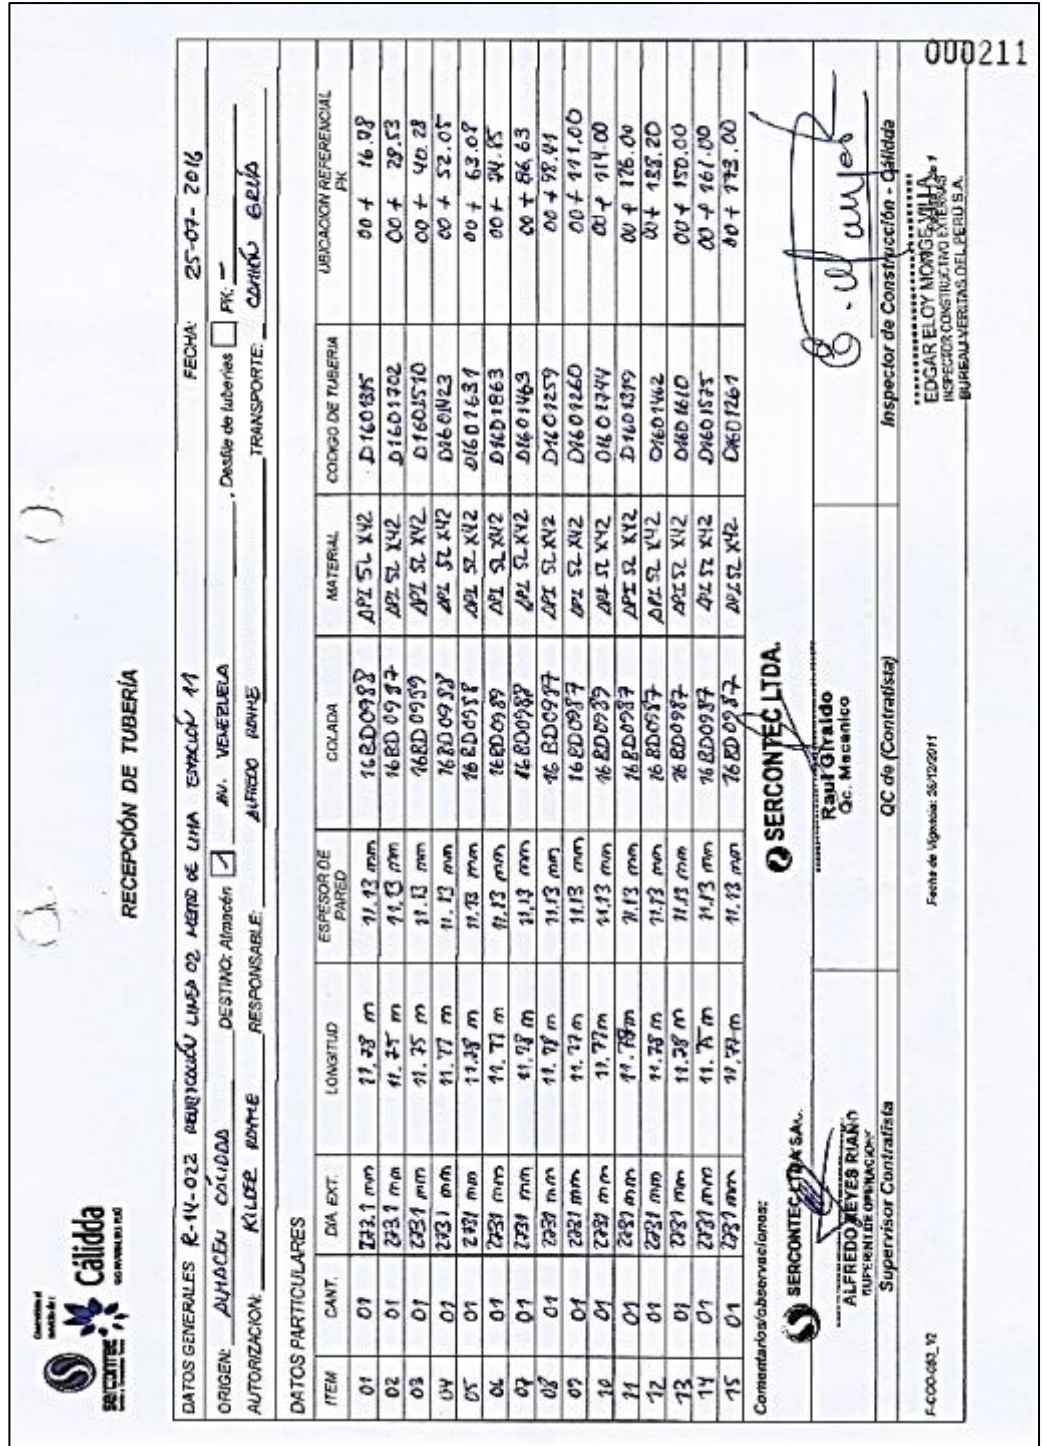 000211
sercontec
Cálidda
GAS NATURAL DEL PERÚ
RECEPCIÓN DE TUBERÍA
DATOS GENERALES R-14-022 REUBICACIÓN LINEA 02 METRO DE LIMA ESTACIÓN 11 FECHA: 25-07-2016
ORIGEN: ALMACEN CALIDDA DESTINO: Almacén AV. VENEZUELA , Desfile de tuberies PK: —
AUTORIZACION: KILDER RESPONSABLE: ALFREDO TRANSPORTE: CAMIÓN GRÚA
DATOS PARTICULARES
ITEM CANT. DIA EXT. LONGITUD ESPESOR DE PARED COLADA MATERIAL CODIGO DE TUBERIA UBICACION REFERENCIAL PK
01 01 273.1 mm 11.78 m 11.13 mm 16BD0988 API 5L X42 D1601315 00 + 16.78
02 01 273.1 mm 11.75 m 11.13 mm 16BD0987 API 5L X42 D1601702 00 + 28.53
03 01 273.1 mm 11.75 m 11.13 mm 16BD0989 API 5L X42 D1601570 00 + 40.28
04 01 273.1 mm 11.77 m 11.13 mm 16BD0988 API 5L X42 D1601423 00 + 52.05
05 01 273.1 mm 11.78 m 11.13 mm 16BD0988 API 5L X42 D1601631 00 + 63.08
06 01 273.1 mm 11.77 m 11.13 mm 16BD0989 API 5L X42 D1601863 00 + 74.85
07 01 273.1 mm 11.78 m 11.13 mm 16BD0988 API 5L X42 D1601463 00 + 86.63
08 01 273.1 mm 11.78 m 11.13 mm 16BD0987 API 5L X42 D1601259 00 + 98.41
09 01 273.1 mm 11.77 m 11.13 mm 16BD0987 API 5L X42 D1601260 00 + 111.00
10 01 273.1 mm 11.77 m 11.13 mm 16BD0989 API 5L X42 D1601744 00 + 114.00
11 01 273.1 mm 11.78 m 11.13 mm 16BD0987 API 5L X42 D1601319 00 + 126.00
12 01 273.1 mm 11.78 m 11.13 mm 16BD0987 API 5L X42 D1601462 00 + 138.20
13 01 273.1 mm 11.78 m 11.13 mm 16BD0987 API 5L X42 D1601610 00 + 150.00
14 01 273.1 mm 11.75 m 11.13 mm 16BD0987 API 5L X42 D1601575 00 + 161.00
15 01 273.1 mm 11.77 m 11.13 mm 16BD0987 API 5L X42 D1601261 00 + 173.00
Comentarios/observaciones:
SERCONTEC LTDA SAC.
ALFREDO REYES RIAÑO
SUPERINT. DE OPERACION
Supervisor Contratista
SERCONTEC LTDA.
Raul Giraldo
Qc. Mecanico
QC de (Contratista)
Inspector de Construcción - Cálidda
EDGAR ELOY MONGE VILLA
INSPECTOR CONSTRUCTIVO EXTERNAS
BUREAU VERITAS DEL PERU S.A.
F-COO-053_V2 Fecha de Vigencia: 26/12/2011